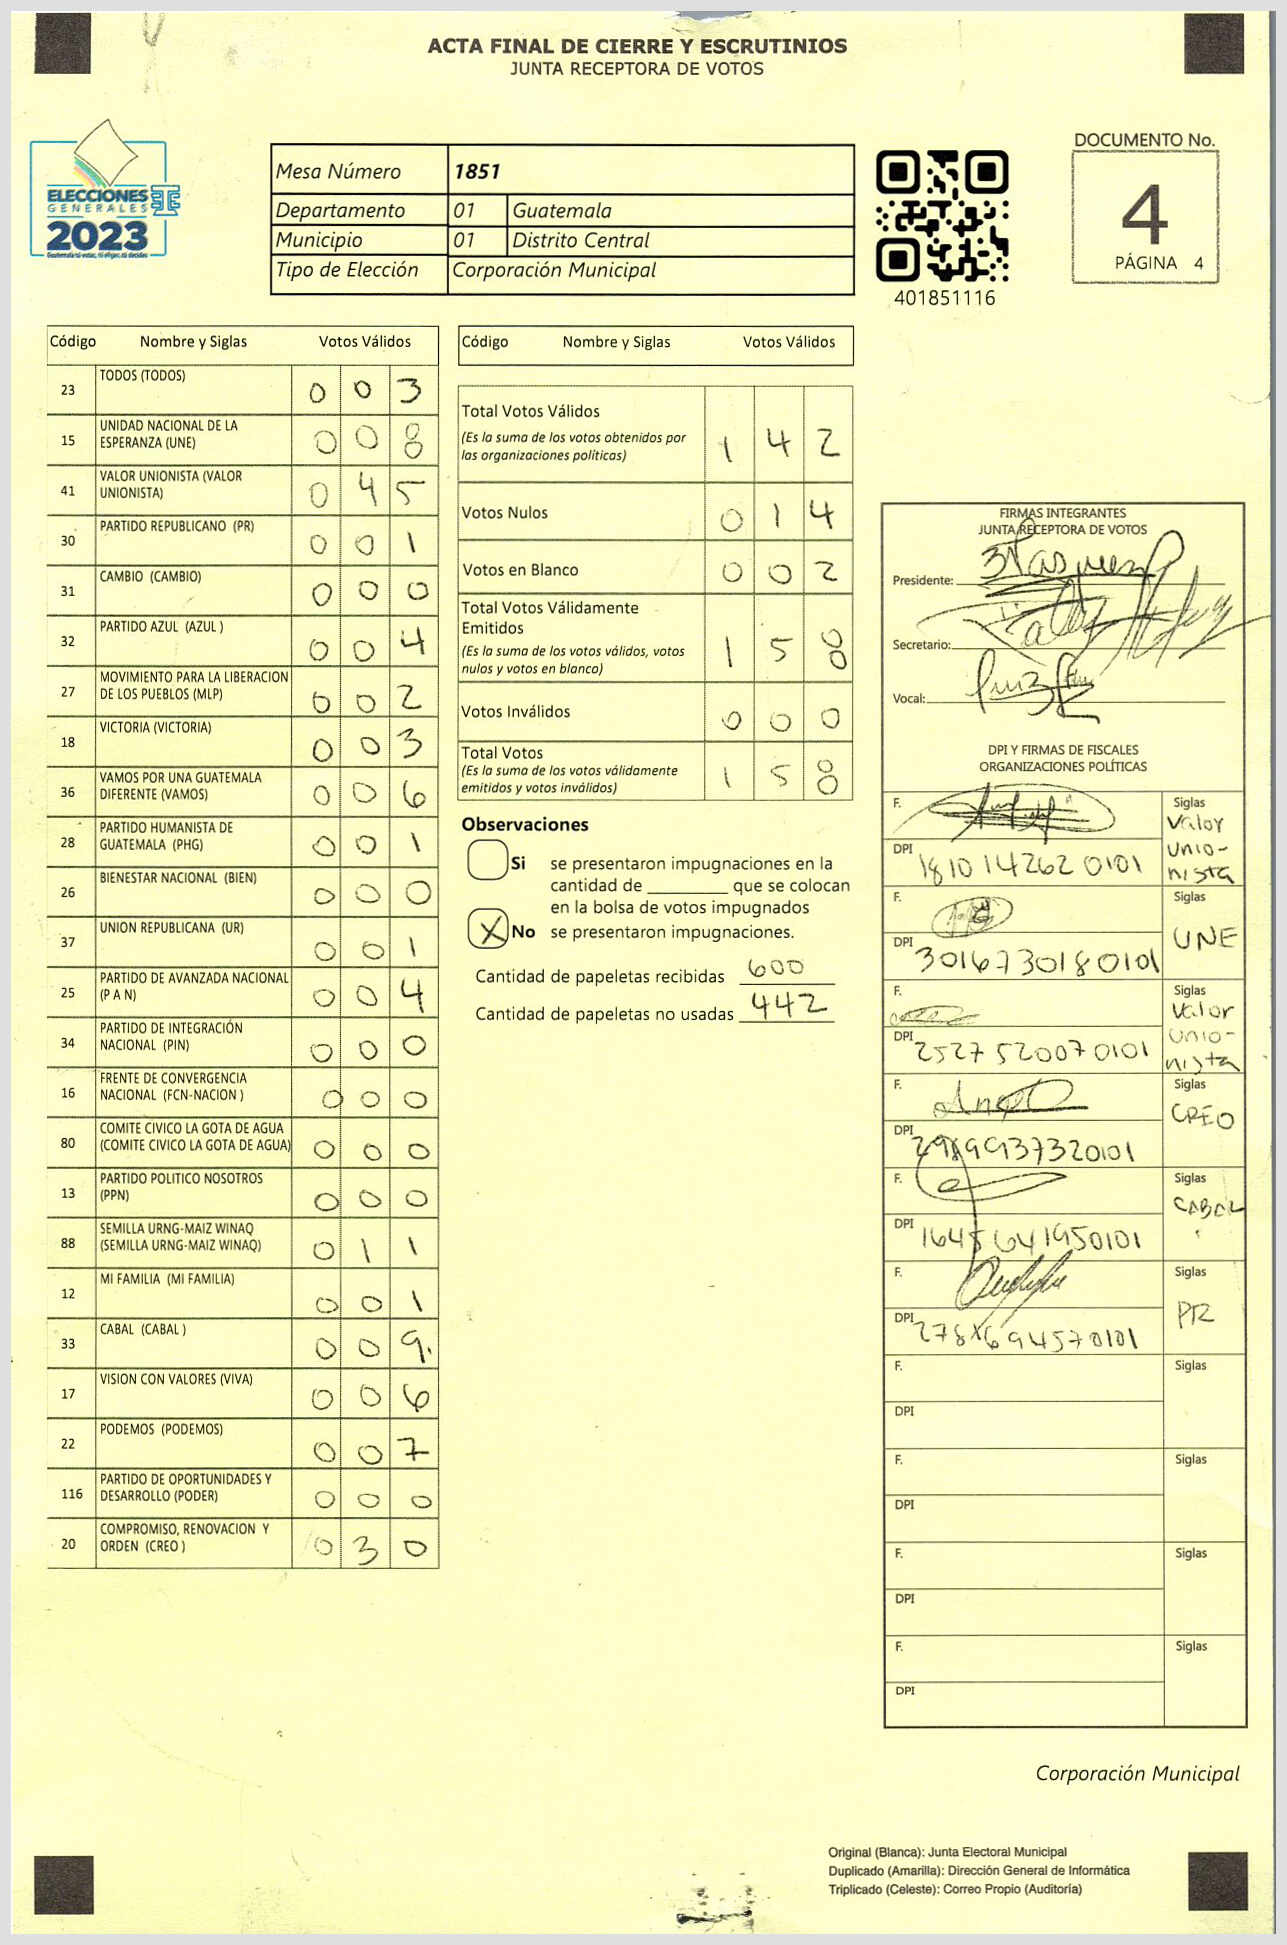 ACTA FINAL DE CIERRE Y ESCRUTINIOS
JUNTA RECEPTORA DE VOTOS
ELECCIONES
GENERALES
2023
Mesa Número 1851
Departamento 01 Guatemala
Municipio 01 Distrito Central
Tipo de Elección Corporación Municipal
401851116
DOCUMENTO No.
4
PÁGINA 4
Código Nombre y Siglas Votos Válidos
23 TODOS (TODOS) 0 0 3
15 UNIDAD NACIONAL DE LA
ESPERANZA (UNE) 0 0 8
41 VALOR UNIONISTA (VALOR
UNIONISTA) 0 4 5
30 PARTIDO REPUBLICANO (PR) 0 0 1
31 CAMBIO (CAMBIO) 0 0 0
32 PARTIDO AZUL (AZUL ) 0 0 4
27 MOVIMIENTO PARA LA LIBERACION
DE LOS PUEBLOS (MLP) 0 0 2
18 VICTORIA (VICTORIA) 0 0 3
36 VAMOS POR UNA GUATEMALA
DIFERENTE (VAMOS) 0 0 6
28 PARTIDO HUMANISTA DE
GUATEMALA (PHG) 0 0 1
26 BIENESTAR NACIONAL (BIEN) 0 0 0
37 UNION REPUBLICANA (UR) 0 0 1
25 PARTIDO DE AVANZADA NACIONAL
(P A N) 0 0 4
34 PARTIDO DE INTEGRACIÓN
NACIONAL (PIN) 0 0 0
16 FRENTE DE CONVERGENCIA
NACIONAL (FCN-NACION ) 0 0 0
80 COMITE CIVICO LA GOTA DE AGUA
(COMITE CIVICO LA GOTA DE AGUA) 0 0 0
13 PARTIDO POLITICO NOSOTROS
(PPN) 0 0 0
88 SEMILLA URNG-MAIZ WINAQ
(SEMILLA URNG-MAIZ WINAQ) 0 1 1
12 MI FAMILIA (MI FAMILIA) 0 0 1
33 CABAL (CABAL ) 0 0 9.
17 VISION CON VALORES (VIVA) 0 0 6
22 PODEMOS (PODEMOS) 0 0 7
116 PARTIDO DE OPORTUNIDADES Y
DESARROLLO (PODER) 0 0 0
20 COMPROMISO, RENOVACION Y
ORDEN (CREO ) 0 3 0
Código Nombre y Siglas Votos Válidos
Total Votos Válidos
(Es la suma de los votos obtenidos por
las organizaciones políticas) 1 4 2
Votos Nulos 0 1 4
Votos en Blanco 0 0 2
Total Votos Válidamente
Emitidos
(Es la suma de los votos válidos, votos
nulos y votos en blanco) 1 5 8
Votos Inválidos 0 0 0
Total Votos
(Es la suma de los votos válidamente
emitidos y votos inválidos) 1 5 8
Observaciones
Si se presentaron impugnaciones en la
cantidad de que se colocan
en la bolsa de votos impugnados
X No se presentaron impugnaciones.
Cantidad de papeletas recibidas 600
Cantidad de papeletas no usadas 442
FIRMAS INTEGRANTES
JUNTA RECEPTORA DE VOTOS
Presidente:
Secretario:
Vocal:
DPI Y FIRMAS DE FISCALES
ORGANIZACIONES POLÍTICAS
F. Siglas
Valor
Unio-
nista
DPI 1810142620101
F. Siglas
UNE
DPI 3016730180101
F. Siglas
Valor
Unio-
nista
DPI 2527520070101
F. Siglas
CREO
DPI 2989937320101
F. Siglas
CABAL
DPI
F. Siglas
PR
DPI
F. Siglas
DPI
F. Siglas
DPI
F. Siglas
DPI
F. Siglas
DPI
Corporación Municipal
Original (Blanca): Junta Electoral Municipal
Duplicado (Amarilla): Dirección General de Informática
Triplicado (Celeste): Correo Propio (Auditoría)